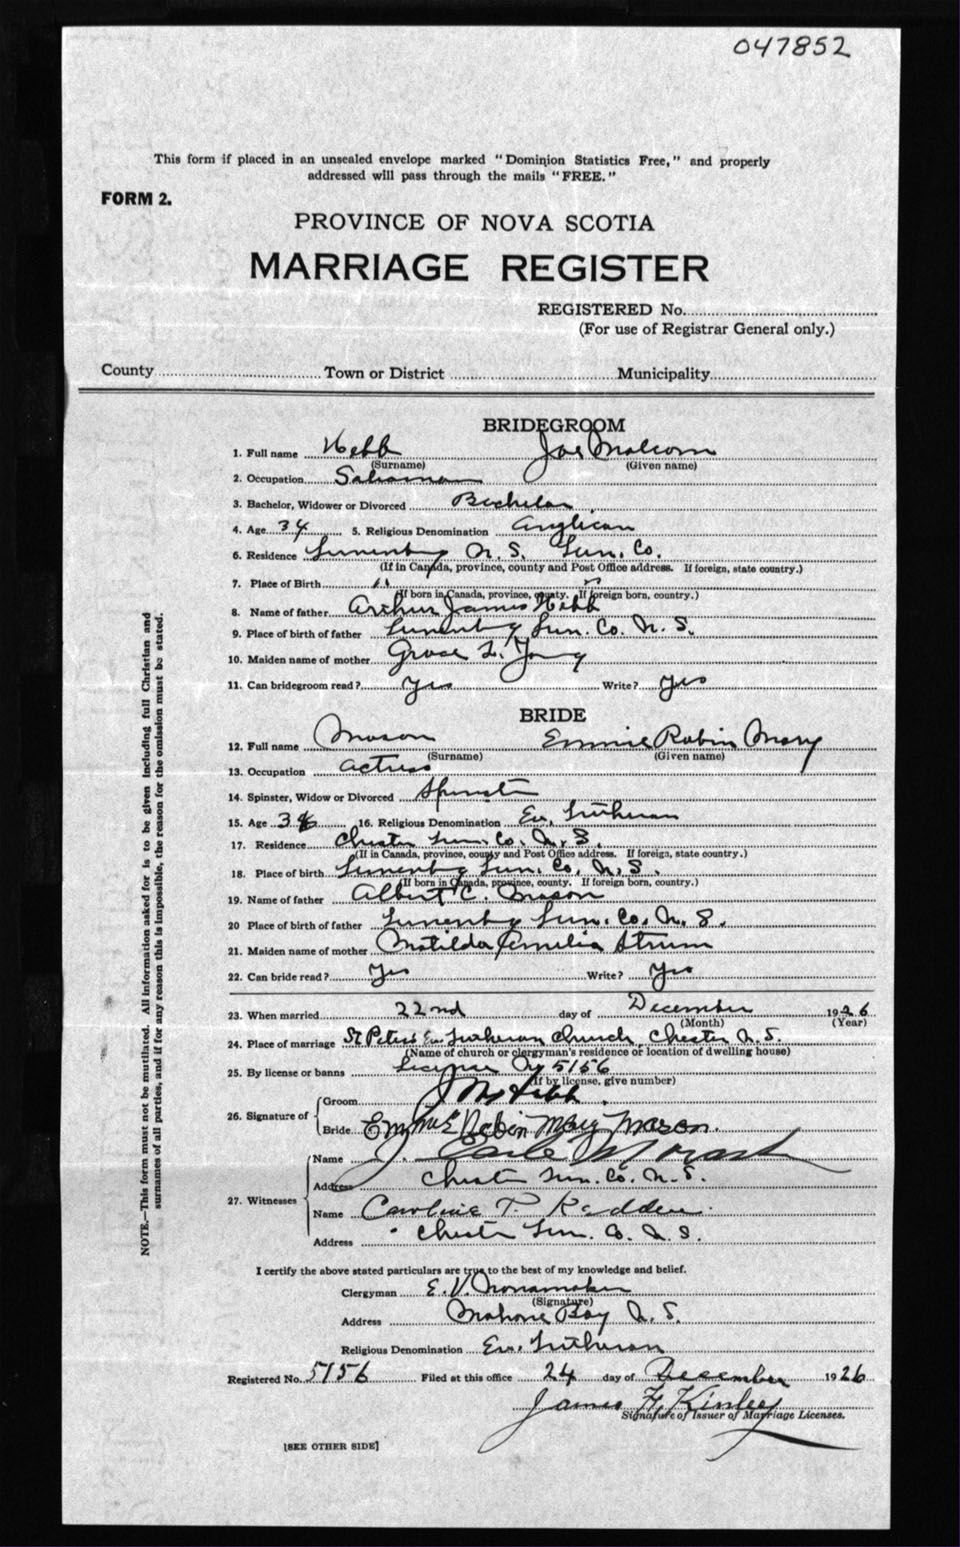 047852
This form if placed in an unsealed envelope marked "Dominion Statistics Free," and properly
addressed will pass through the mails "FREE."
FORM 2.
PROVINCE OF NOVA SCOTIA
MARRIAGE REGISTER
REGISTERED No.
(For use of Registrar General only.)
County Town or District Municipality
BRIDEGROOM
1. Full name Hebb Jas Malcom
(Surname) (Given name)
2. Occupation Salesman
3. Bachelor, Widower or Divorced Bachelor
4. Age 34 5. Religious Denomination Anglican
6. Residence Lunenburg N. S. Lun. Co.
(If in Canada, province, county and Post Office address. If foreign, state country.)
7. Place of Birth " "
(If born in Canada, province, county. If foreign born, country.)
8. Name of father Arthur James Hebb
9. Place of birth of father Lunenburg Lun. Co. N. S.
10. Maiden name of mother Grace L. Young
11. Can bridegroom read? Yes Write? Yes
BRIDE
12. Full name Mason Emmie Robin Mary
(Surname) (Given name)
13. Occupation Actress
14. Spinster, Widow or Divorced Spinster
15. Age 16. Religious Denomination Ev. Lutheran
17. Residence Chester Lun. Co. N. S.
(If in Canada, province, county and Post Office address. If foreign, state country.)
18. Place of birth Lunenburg Lun. Co. N. S.
(If born in Canada, province, county. If foreign born, country.)
19. Name of father Albert C. Mason
20 Place of birth of father Lunenburg Lun. Co. N. S.
21. Maiden name of mother Matilda Amelia Strum
22. Can bride read? Yes Write? Yes
23. When married 22nd day of December 1926
(Month) (Year)
24. Place of marriage St Peters Ev. Lutheran Church, Chester N. S.
(Name of church or clergyman's residence or location of dwelling house)
25. By license or banns License 5156
(If by license, give number)
26. Signature of Groom J M Hebb
Bride Emmie Robin Mary Mason.
27. Witnesses Name J. Earle Morash
Address Chester Lun. Co. N. S.
Name Caroline T. Redden
Address Chester Lun. Co. N. S.
I certify the above stated particulars are true to the best of my knowledge and belief.
Clergyman E. V. Nonamaker
(Signature)
Address Mahone Bay N. S.
Religious Denomination Ev. Lutheran
Registered No. 5156 Filed at this office 24 day of December 1926
James F. Kinley
Signature of Issuer of Marriage Licenses.
[SEE OTHER SIDE]
NOTE.—This form must not be mutilated. All information asked for is to be given including full Christian and
surnames of all parties, and if for any reason this is impossible, the reason for the omission must be stated.